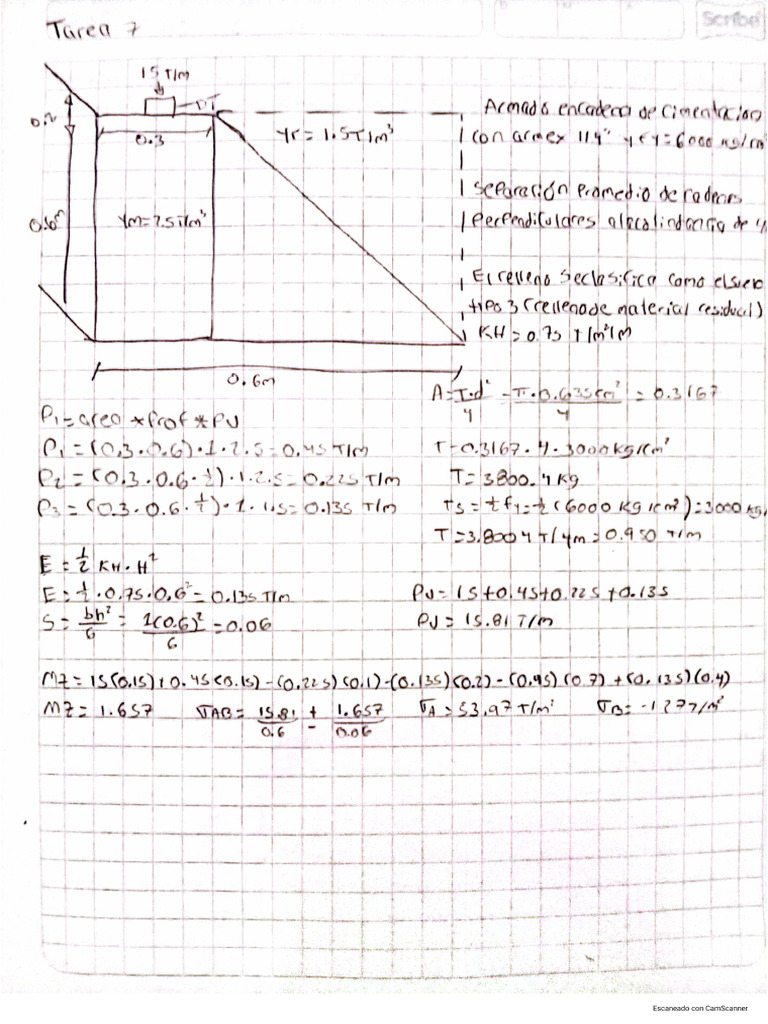 Tarea 7
Scribe
15 T/m
DT
0.2
0.3
γr = 1.5 T/m³
0.60m
γm = 2.5 T/m³
0.6m
Armado en cadena de cimentación
con armex 1 1/4" y fy = 6000 kg/cm²
Separación Promedio de cadenas
Perpendiculares a la colindancia de 4
El relleno se clasifica como el suelo
tipo 3 (relleno de material residual)
KH = 0.75 T/m²/m
P1 = area * Prof * PV
P1 = (0.3 · 0.6) · 1 · 2.5 = 0.45 T/m
P2 = (0.3 · 0.6 · 1/2) · 1 · 2.5 = 0.225 T/m
P3 = (0.3 · 0.6 · 1/2) · 1 · 1.5 = 0.135 T/m
E = 1/2 KH · H²
E = 1/2 · 0.75 · 0.6² = 0.135 T/m
S = bh²/6 = 1(0.6)²/6 = 0.06
A = π·d²/4 = π·0.635cm²/4 = 0.3167
T = 0.3167 · 4 · 3000 kg/cm²
T = 3800.4 kg
Ts = 1/2 fy = 1/2 (6000 kg/cm²) = 3000 kg/
T = 3.8004 T/4m = 0.950 T/m
PU = 15 + 0.45 + 0.225 + 0.135
PU = 15.81 T/m
MZ = 15(0.15) + 0.45(0.15) - (0.225)(0.1) - (0.135)(0.2) - (0.95)(0.7) + (0.135)(0.4)
MZ = 1.657 σAB = 15.81/0.6 ± 1.657/0.06 σA = 53.97 T/m² σB = -1.27 T/m²
Escaneado con CamScanner